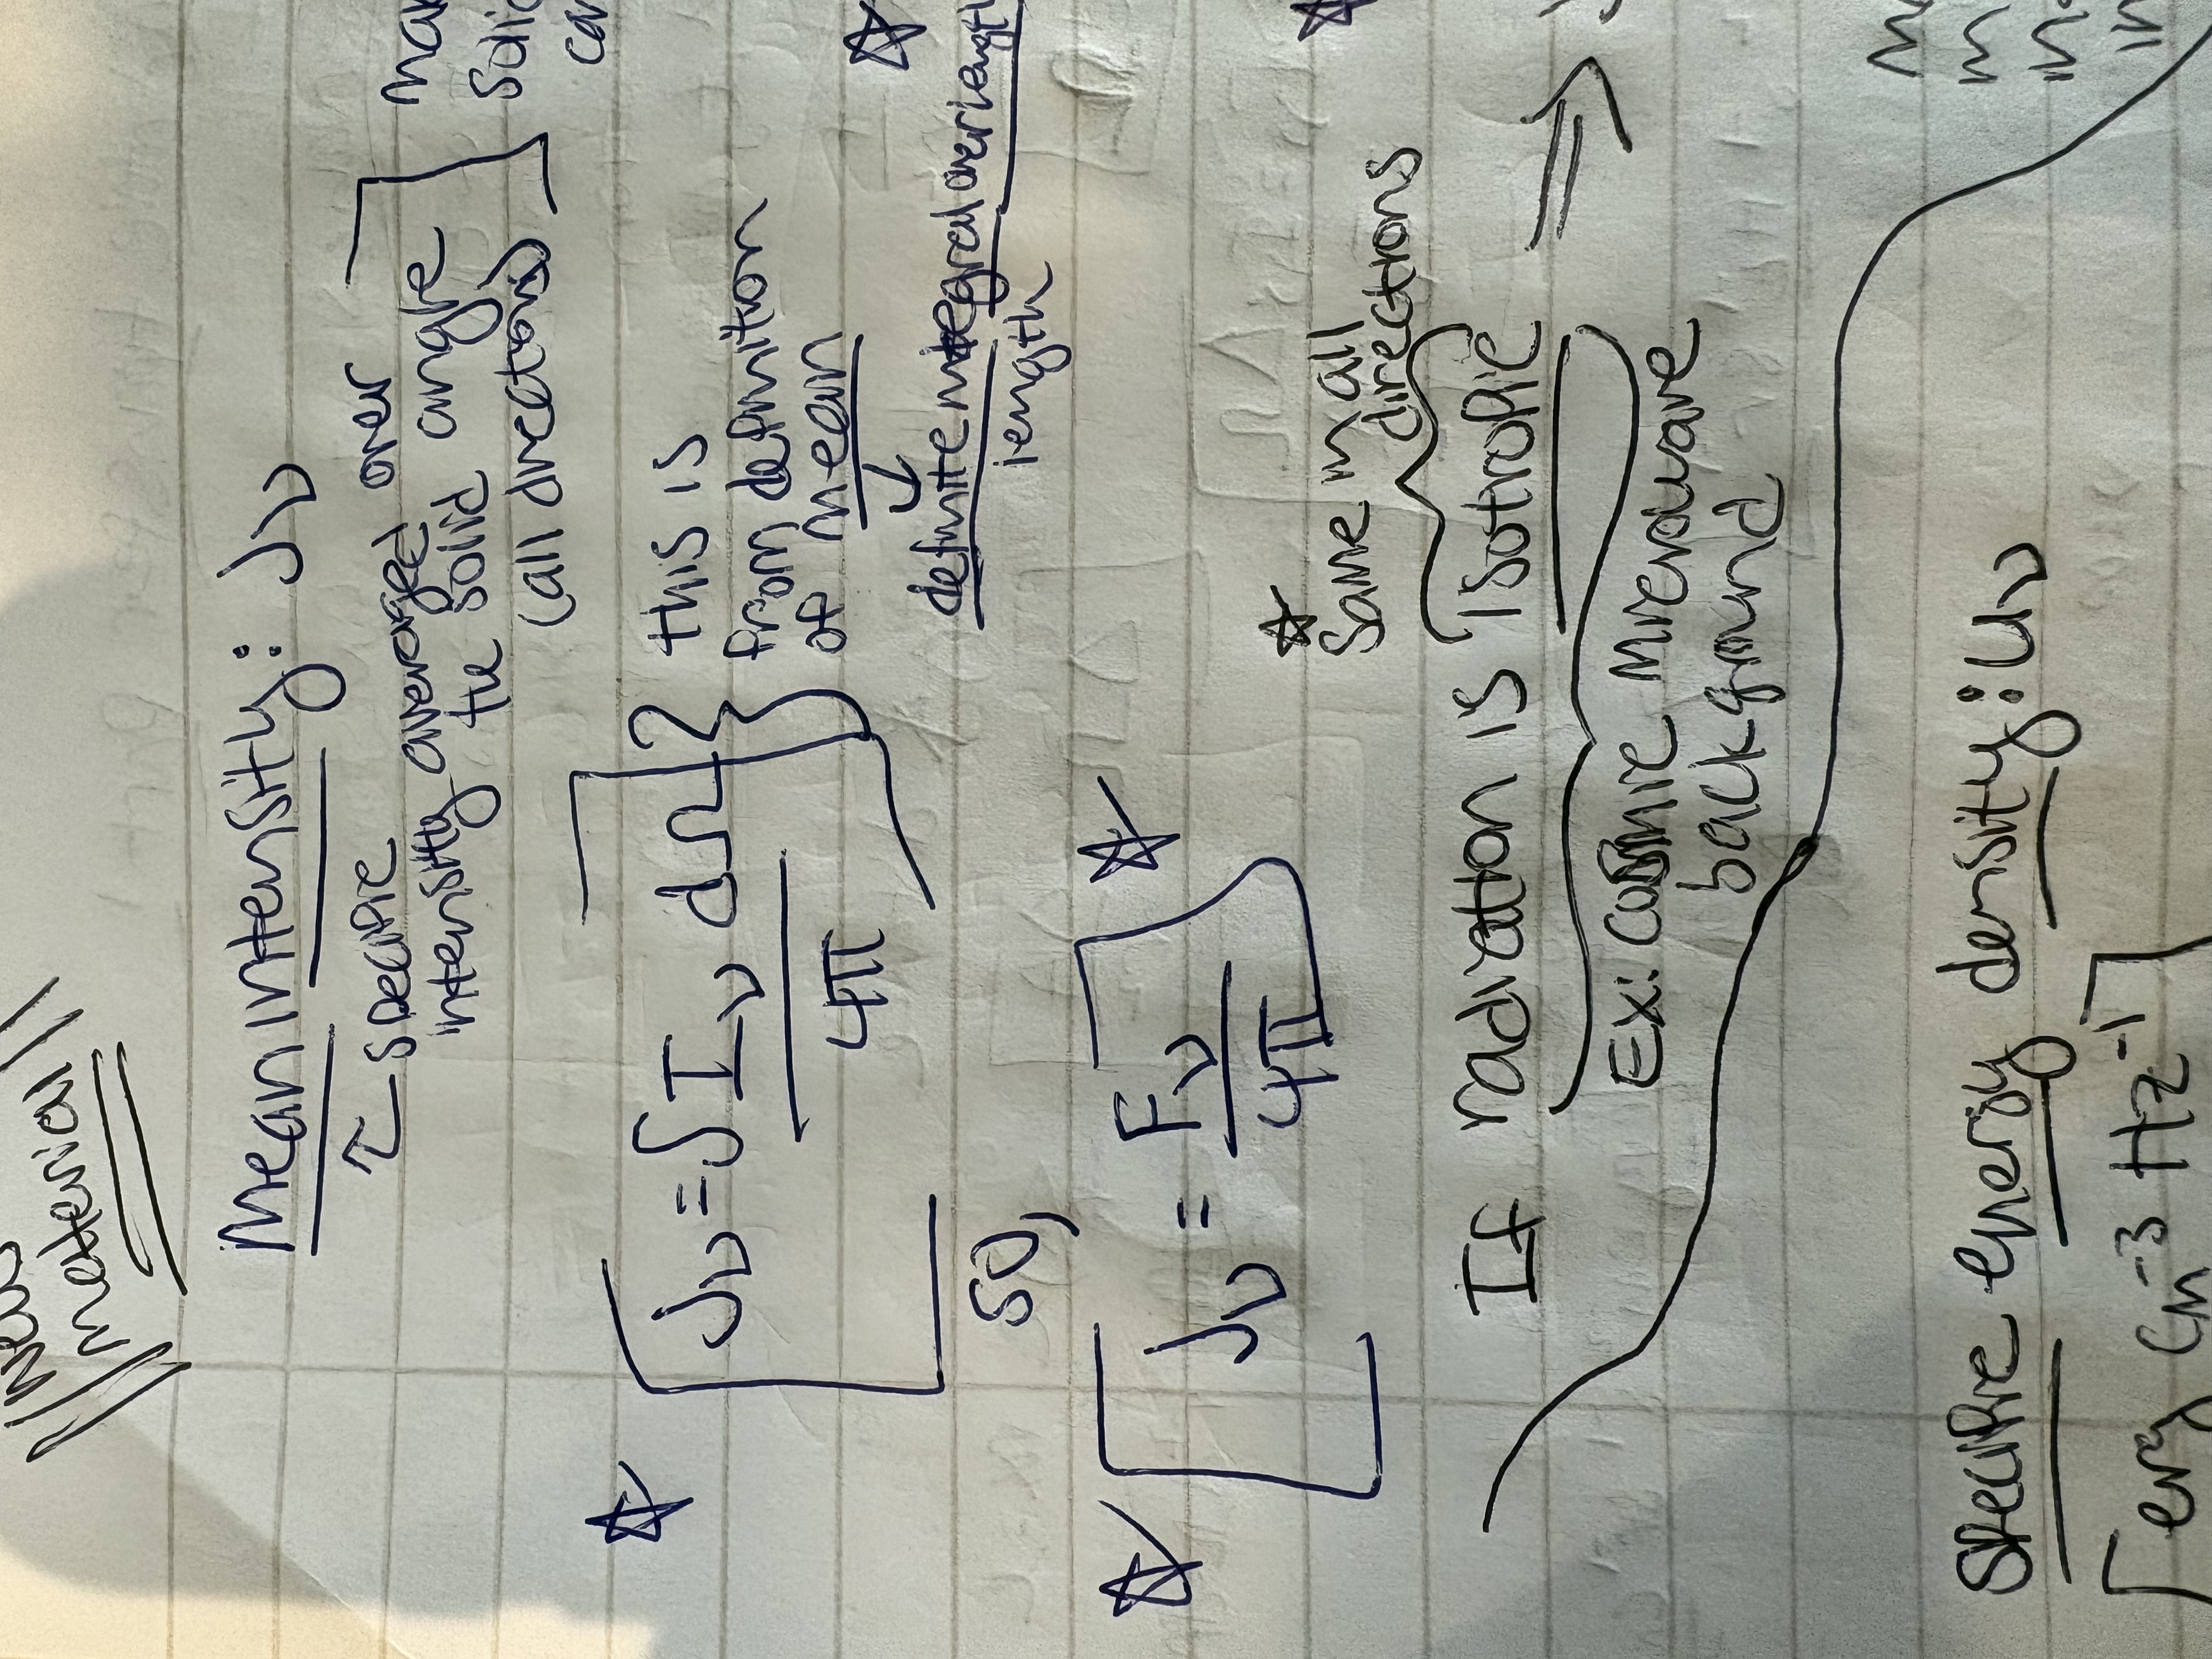 new
material
Mean intensity: Jν
specific
intensity averaged over
the solid angle
(all directions)
Jν = ∫ Iν dΩ
4π
this is
from definition
of mean
definite integral over length
length
so,
Jν = Fν
4π
same in all
directions
If radiation is isotropic ⇒
Ex: cosmic microwave
background
specific energy density: uν
erg cm⁻³ Hz⁻¹